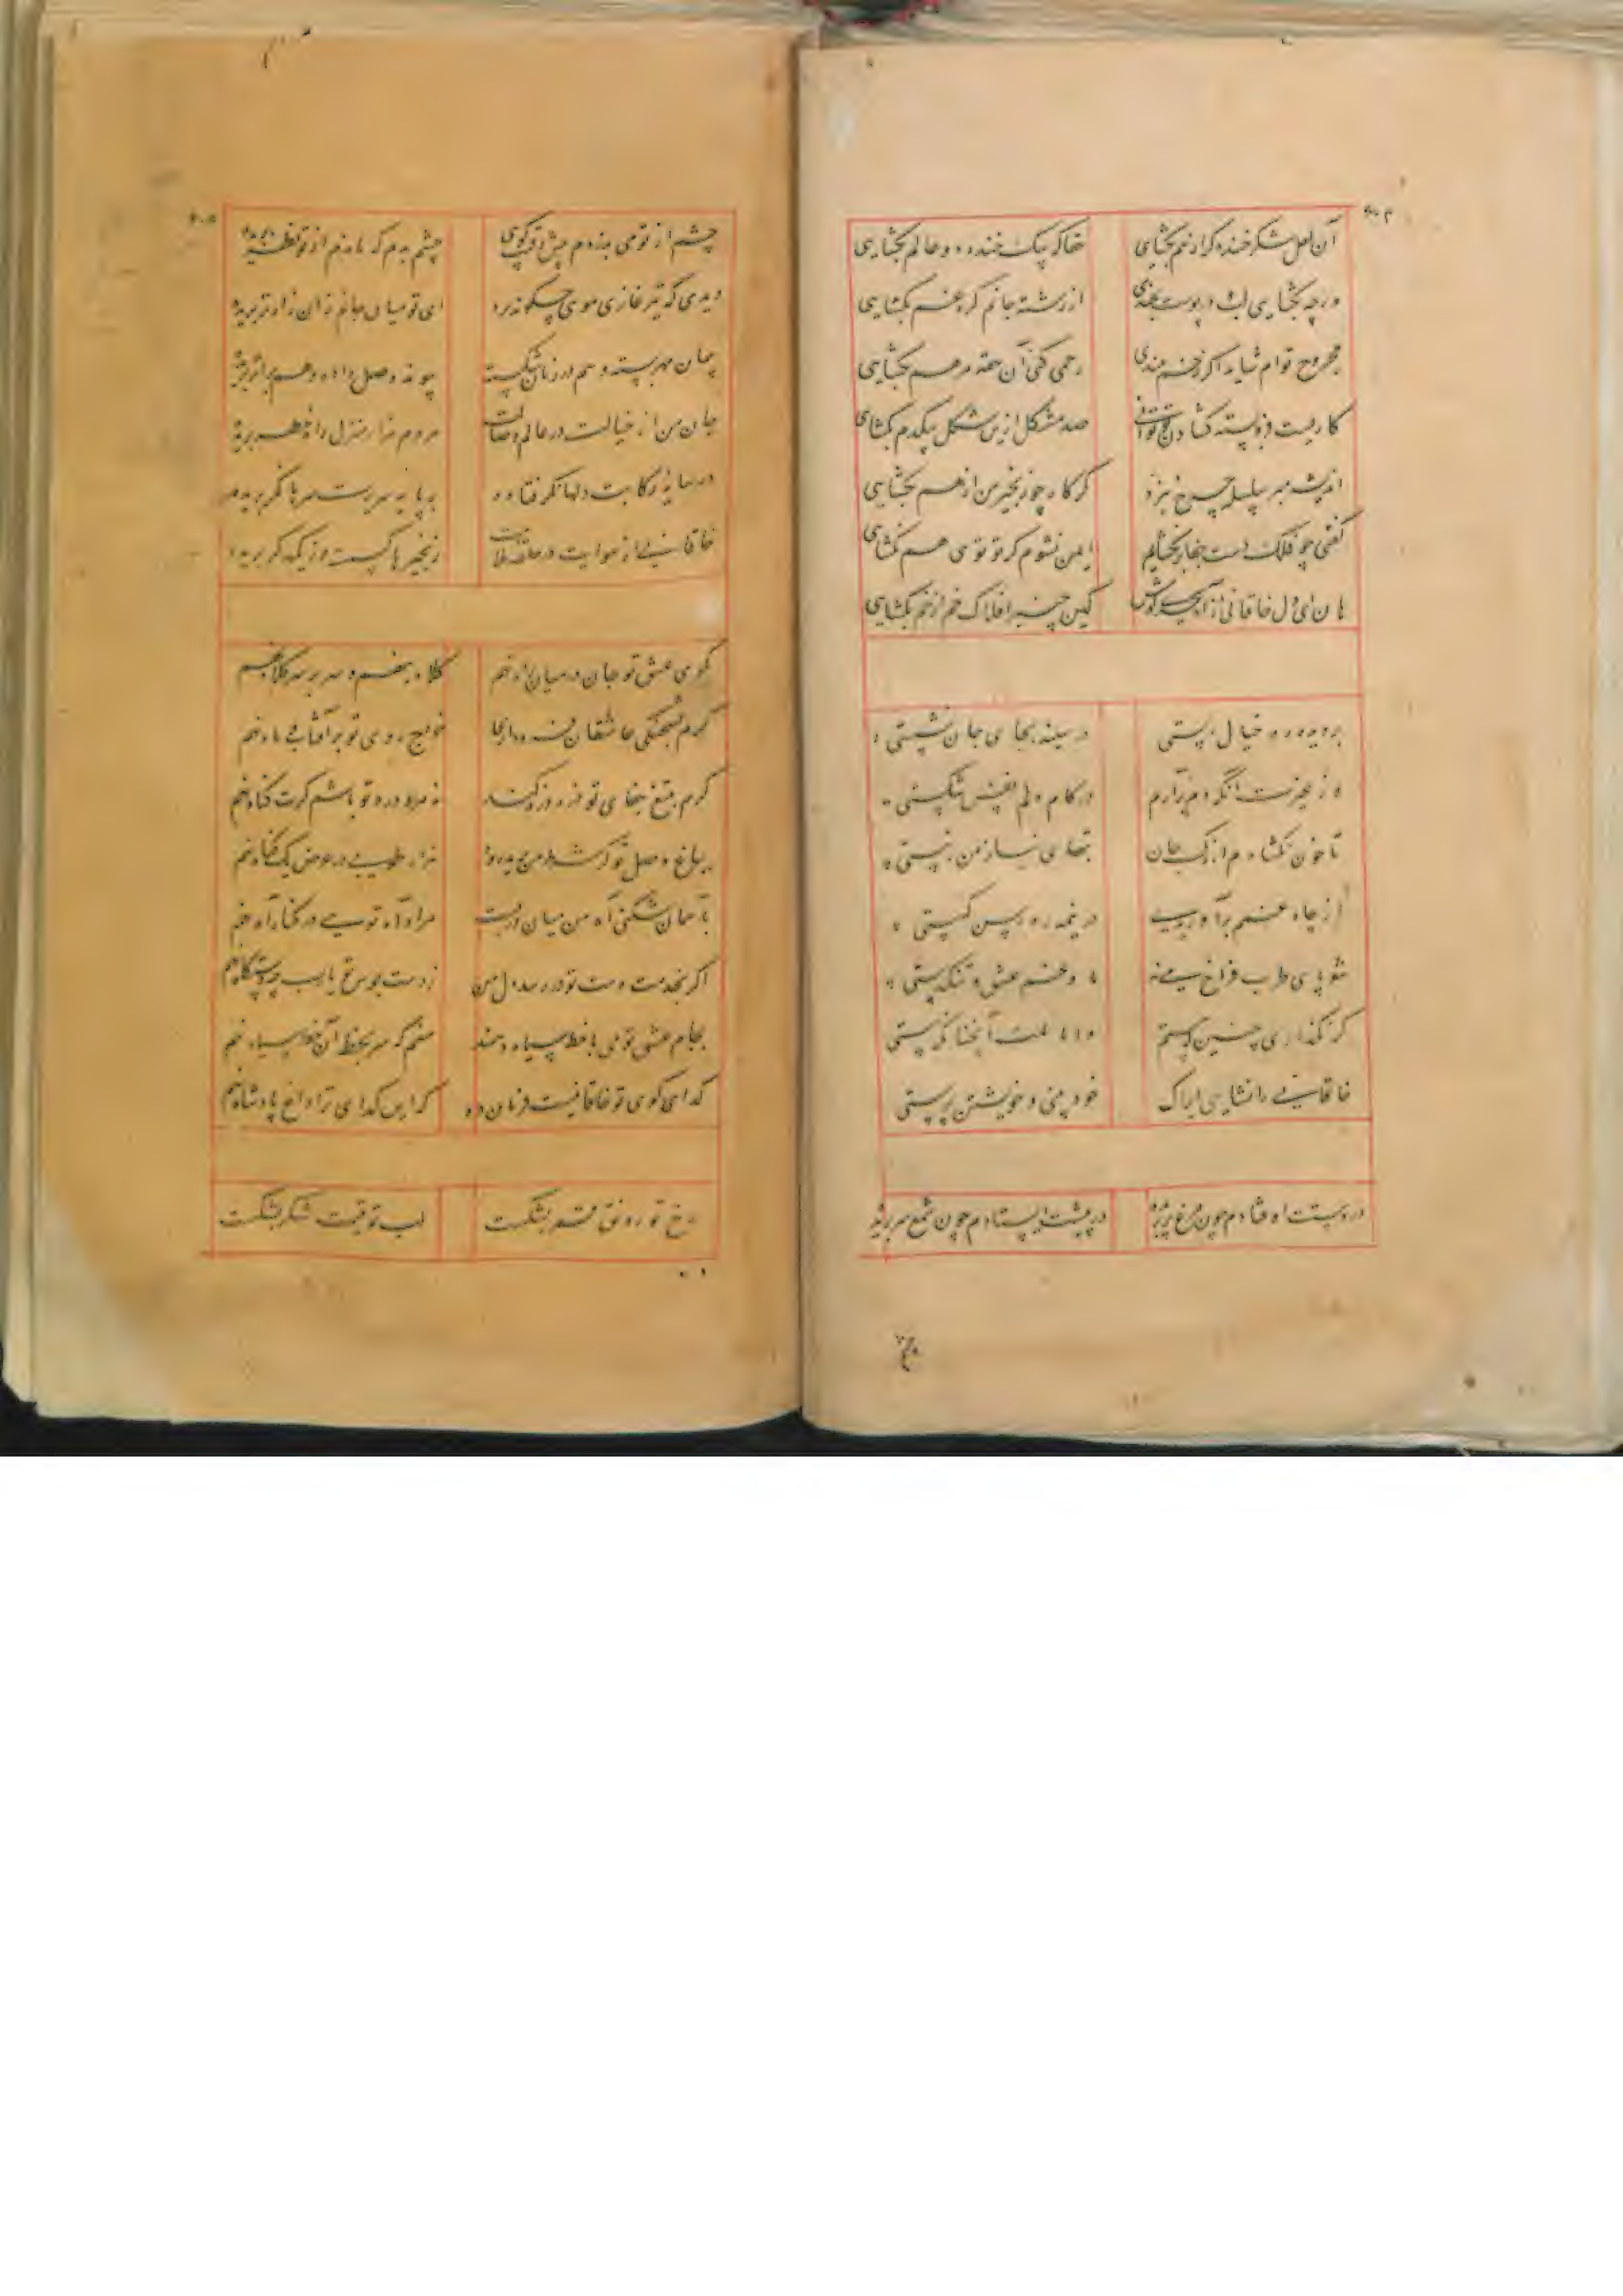 آن لعل شکر خنده گر از هم بگشایی حقا که بیک خنده دو عالم بگشایی
ورچه نگشایی لب در پوست بخندی از رشته جانم گره غم بگشایی
مجروح توام شاید اگر زخم ببندی رحمی کنی آن حقه مرهم بگشایی
کاریست فروبسته گشادن تو توانی صد مشکل ازین شکل بیکدم بگشای
اندیشه مبر سلسله چرخ نبرد گر کار چو زنجیر من از هم بگشایی
گفتی چو فلک دست جفا برنگشایم ایمن نشوم گر تو تویی هم بگشای
هان ای دل خاقانی از آه سحری کوش کین چنبر افلاک خم از خم بگشایی
بر دیده ره خیال بستی در سینه بجای جان نشستی
وز غیرت آنکه دم برآرم در کام دلم نفس شکستی
تا خون نگشادم از رگ جان تبهای نیاز من نبستی
از چاه غمم برآوریدی در نیمه ره رسن گسستی
جویای طرب فراخ بینی ما و غم عشق و تنگدستی
گر نگذاری چنین که هستم دانا آنچنانکه هستی
خاقانی را نشاید ایراک خودبینی و خویشتن پرستی
در دستت اوفتادم چون مرغ پر بریده در پیشت ایستادم چون شمع سر بریده
چشم از تو می ندوزم پیش رقیب کوی چشم بدم که ماندم از تو نظر بریده
دیدی که تیر غازی موی چگونه برد ای تو میان جانم زان زارتر بریده
پیمان مهر بسته و هم در زمان شکسته پیوند وصل داده و هم بر اثر بریده
جان من از خیالت در عالم وصالت هر دم هزار منزل راه خطر بریده
در سایه رکابت دلها نگر فتاده بر پایه سریرت سرها نگر بریده
خاقانی از هوایت در حلقه ملامت زنجیرها گسسته وز یکدگر بریده
بکوی عشق تو جان در میان راه نهم کلاه بنهم و سر بر سر کلاه نهم
گرم بشحنگی عاشقان فرود آری خراج روی تو بر آفتاب و ماه نهم
گرم بتیغ جفای تو ذره ذره کنند نه مرد درد تو باشم گرت گناه نهم
بباغ وصل تو گر شرط من بریده شود هزار طوبی در عوض یک گیاه نهم
بآسمان شکنی آه من میان دربست مراد آه تویی در کنار آه نهم
اگر بخدمت دست تو در رسد لب من ز دست بوس تو یارب چه دستگاه نهم
بجام عشق تو می با خط سیاه دهند منم که سر بخط آن خط سیاه نهم
گدای کوی تو خاقانیست فرمان ده که این گدای ترا داغ پادشاه نهم
رخ تو رونق قمر بشکست لب تو قیمت شکر بشکست
چشم